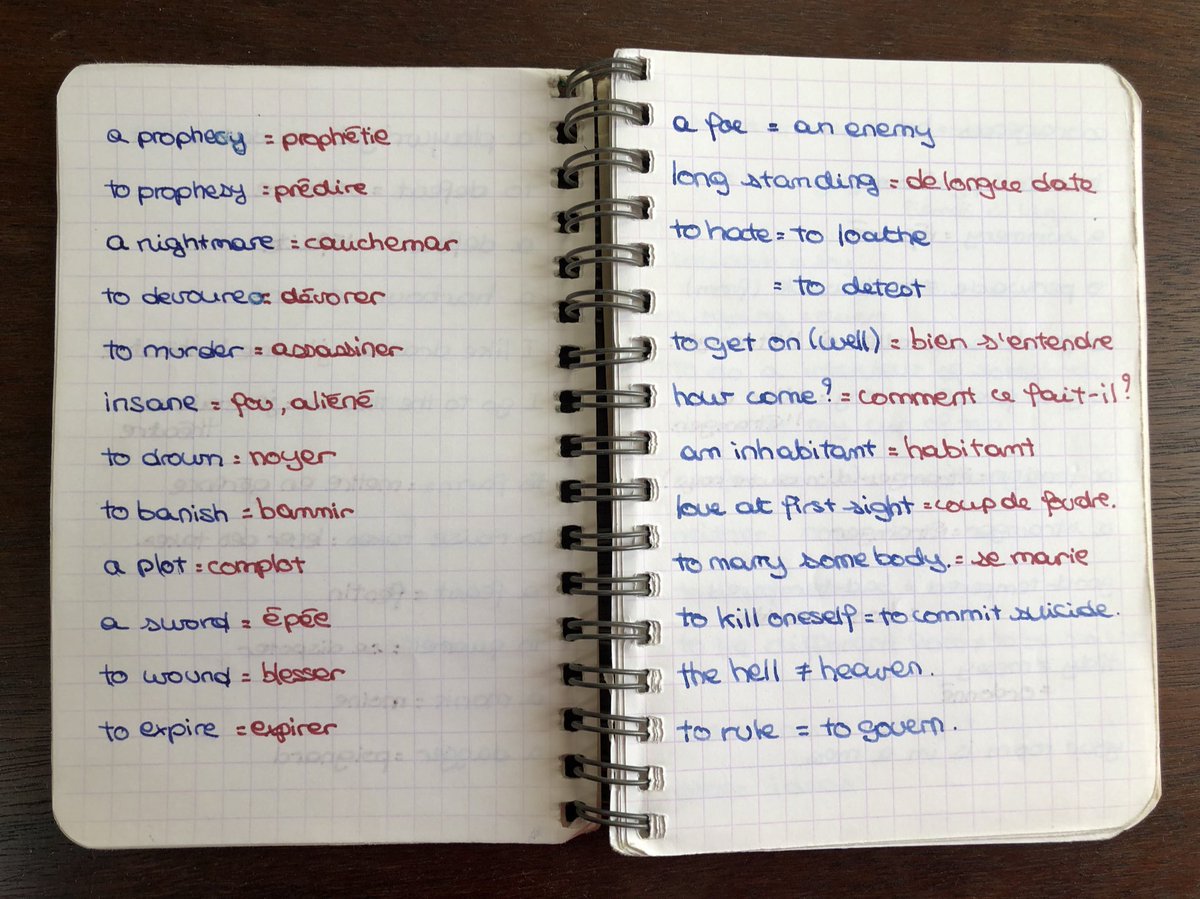 a prophecy = prophétie
to prophesy = prédire
a nightmare = cauchemar
to devoureo = dévorer
to murder = assassiner
insane = fou, aliéné
to drown = noyer
to banish = bannir
a plot = complot
a sword = épée
to wound = blesser
to expire = expirer
a foe = an enemy
long standing = de longue date
to hate = to loathe
= to detest
to get on (well) = bien s'entendre
how come? = comment ce fait-il?
an inhabitant = habitant
love at first sight = coup de foudre.
to marry somebody. = se marie
to kill oneself = to commit suicide.
the hell ≠ heaven.
to rule = to govern.